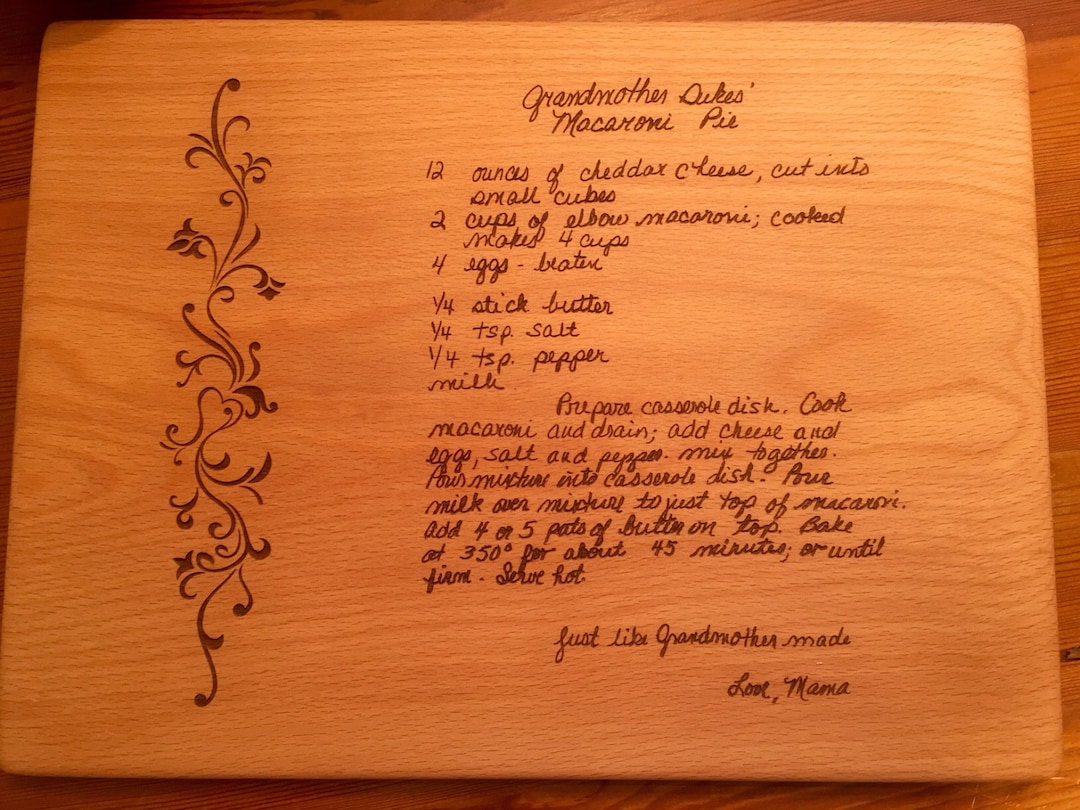 Grandmother Dukes'
Macaroni Pie
12 ounces of cheddar cheese, cut into
small cubes
2 cups of elbow macaroni; cooked
makes 4 cups
4 eggs - beaten
1/4 stick butter
1/4 tsp. salt
1/4 tsp. pepper
milk
Prepare casserole dish. Cook
macaroni and drain; add cheese and
eggs, salt and pepper. mix together.
Pour mixture into casserole dish. Pour
milk over mixture to just top of macaroni.
Add 4 or 5 pats of butter on top. Bake
at 350° for about 45 minutes; or until
firm. Serve hot.
Just like Grandmother made
Love, Mama